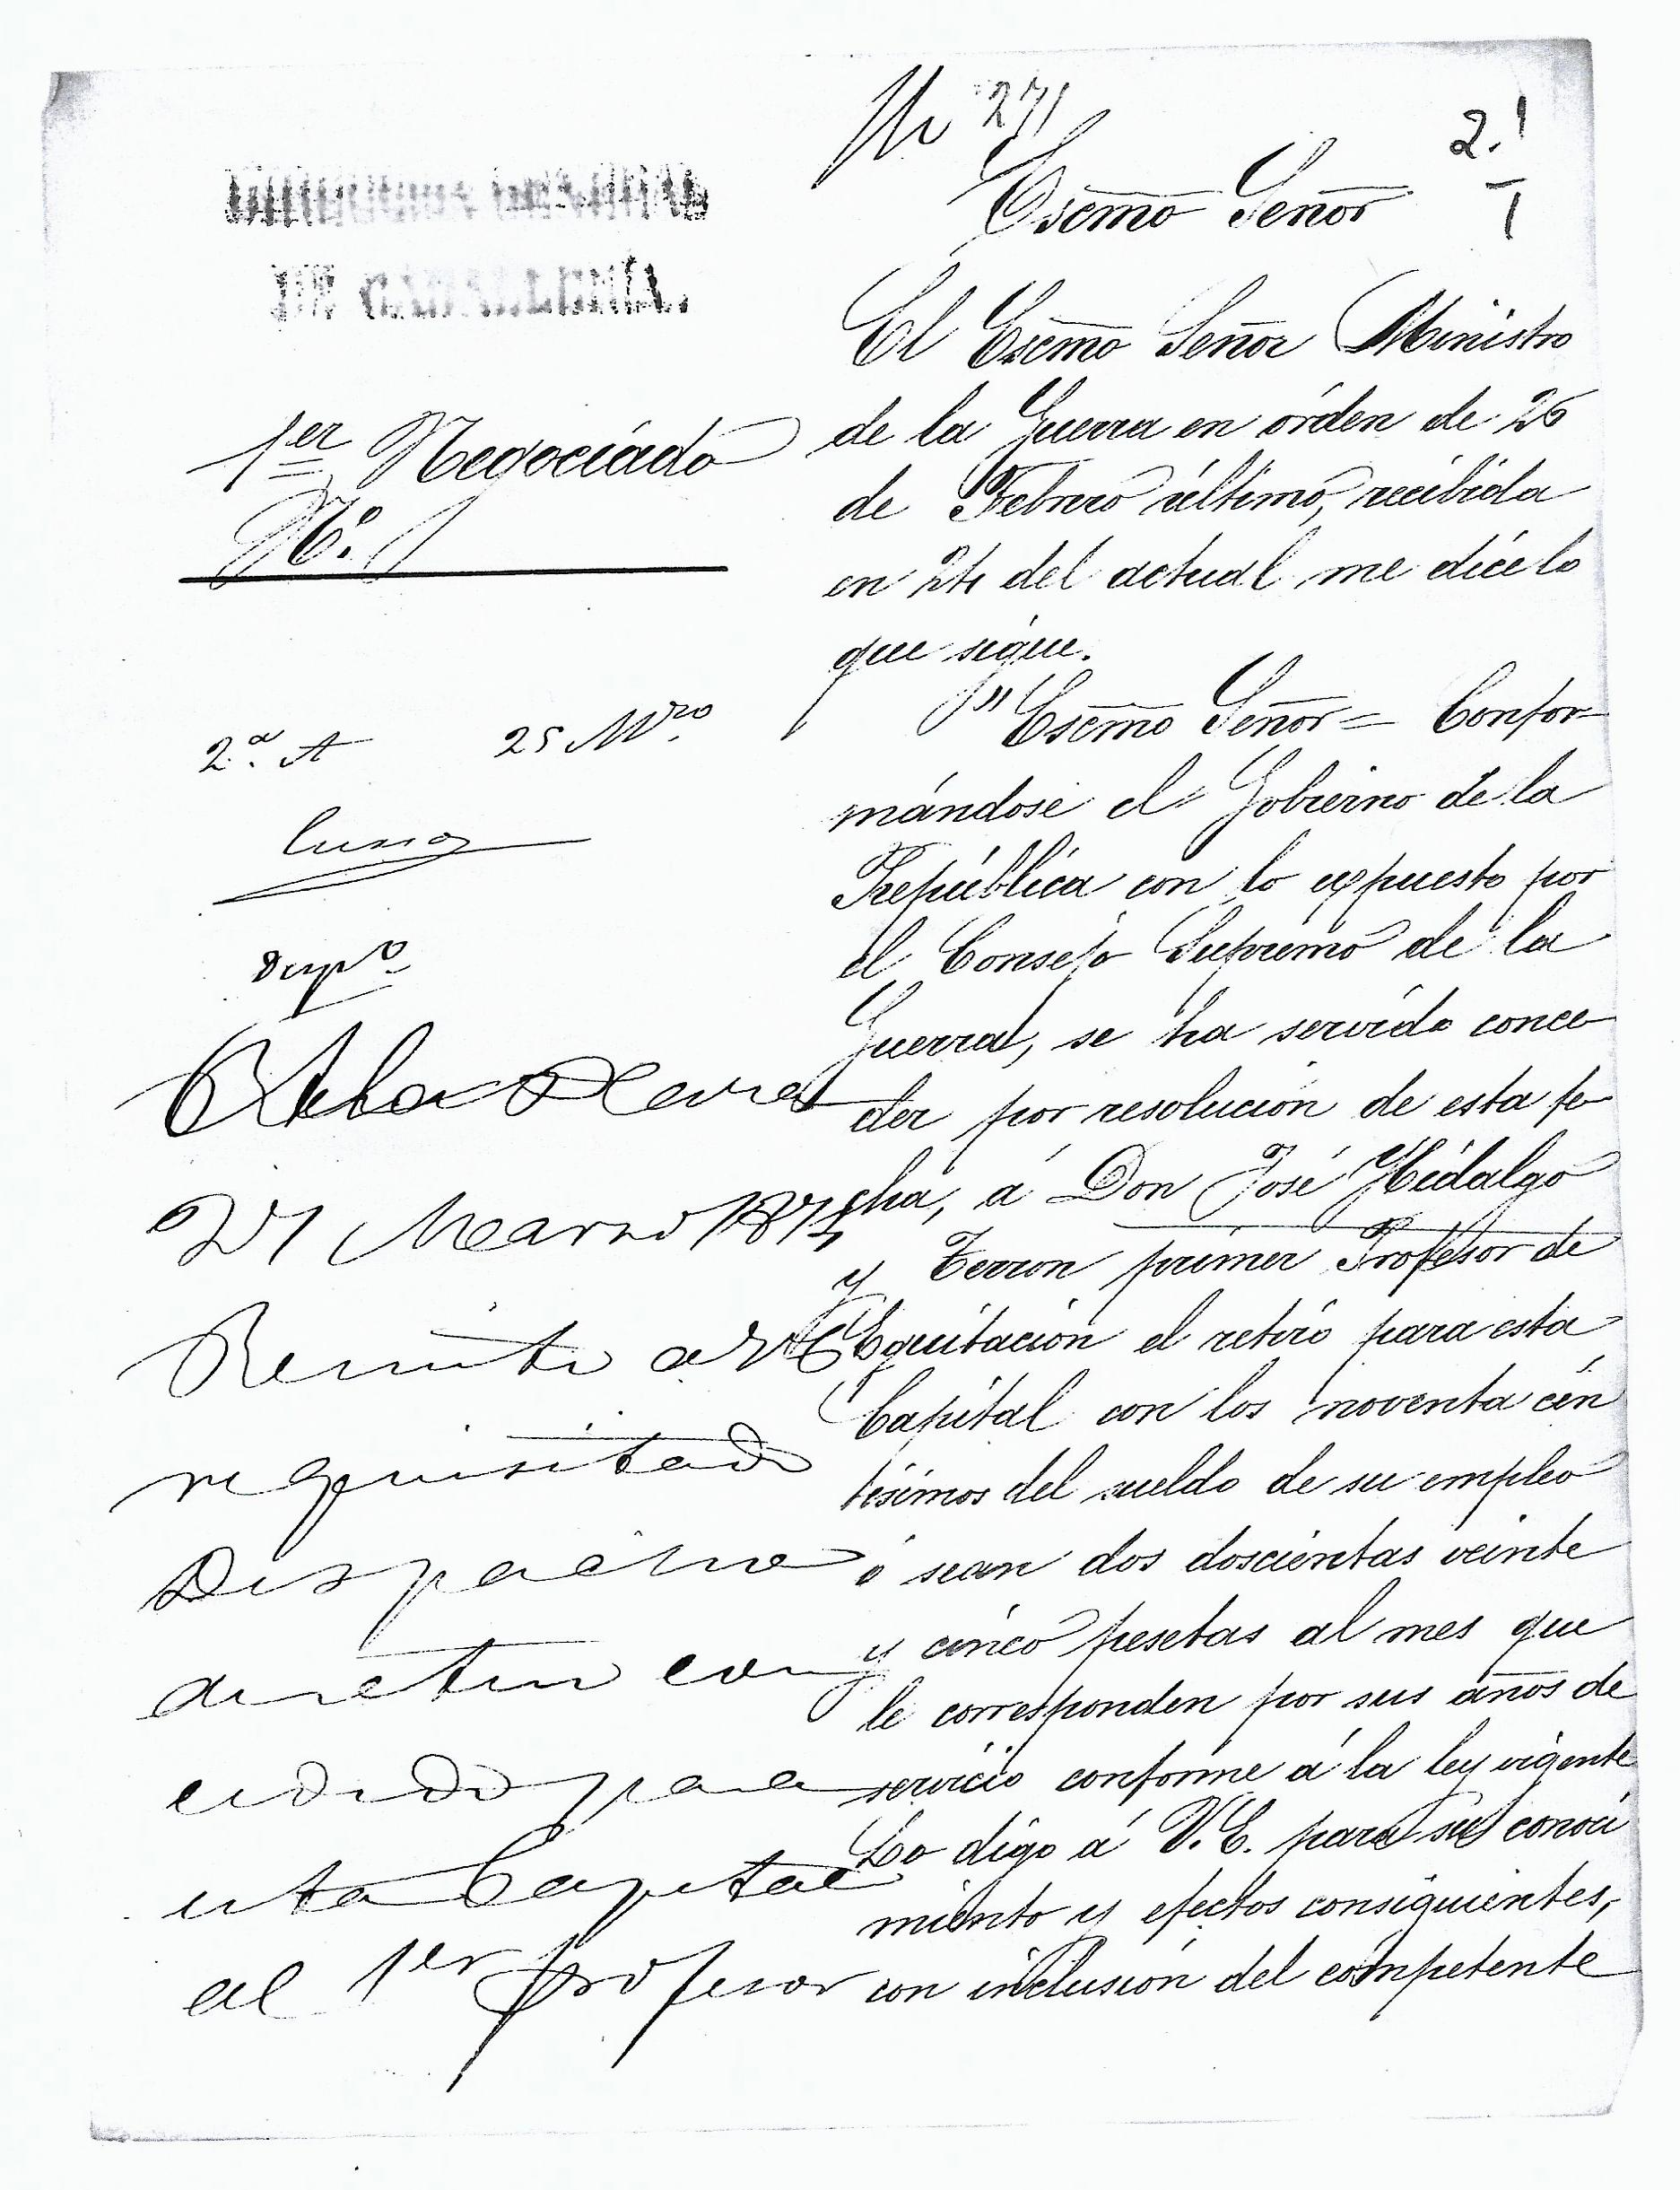 No 271
2.
1
DIRECCION GENERAL
DE CABALLERÍA.
1er Negociado
N.º 1
2.ª A 25 Mzo
Despº
21 Marzo 1874
Remite a V E
requisitado
Despacho
de retiro con
cedido para
esta Capital
al 1er Profesor
Escmo Señor
El Escmo Señor Ministro
de la Guerra en órden de 26
de Febrero último, recibida
en 24 del actual me dice lo
que sigue.
"Escmo Señor = Confor-
mándose el Gobierno de la
República con lo espuesto por
el Consejo Supremo de la
Guerra, se ha servido conce-
der por resolucion de esta fe-
cha, á Don José Hidalgo
y Terron primer Profesor de
Equitacion el retiro para esta
Capital con los noventa cén
tésimos del sueldo de su empleo
ó sean dos doscientas veinte
y cinco pesetas al mes que
le corresponden por sus años de
servicio conforme á la ley vigente
Lo digo á V.E. para su conoci
miento y efectos consiguientes,
con inclusion del competente